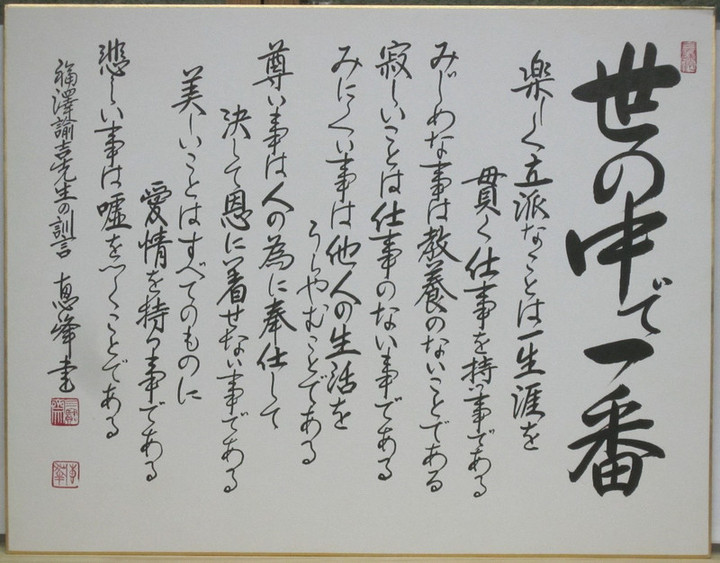 世の中で一番
楽しく立派なことは一生涯を
貫く仕事を持つ事である
みじめな事は教養のないことである
寂しいことは仕事のない事である
みにくい事は他人の生活を
うらやむことである
尊い事は人の為に奉仕して
決して恩に着せない事である
美しいことはすべてのものに
愛情を持つ事である
悲しい事は嘘をつくことである
福澤諭吉先生の訓言 恵峰書